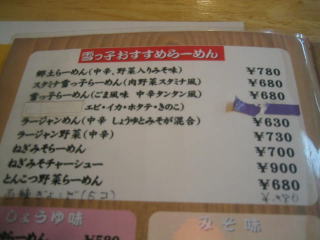 雪っ子おすすめらーめん
郷土らーめん(中辛、野菜入りみそ味) ¥780
スタミナ雪っ子らーめん(肉野菜スタミナ風) ¥680
雪っ子らーめん(ごま風味 中辛タンタン風) ¥680
エビ・イカ・ホタテ・きのこ
ラージャンめん(中辛 しょうゆとみそが混合) ¥630
ラージャン野菜(中辛) ¥730
ねぎみそらーめん ¥700
ねぎみそチャーシュー ¥900
とんこつ野菜らーめん ¥680
しょうゆ味
みそ味
らーめん ¥580